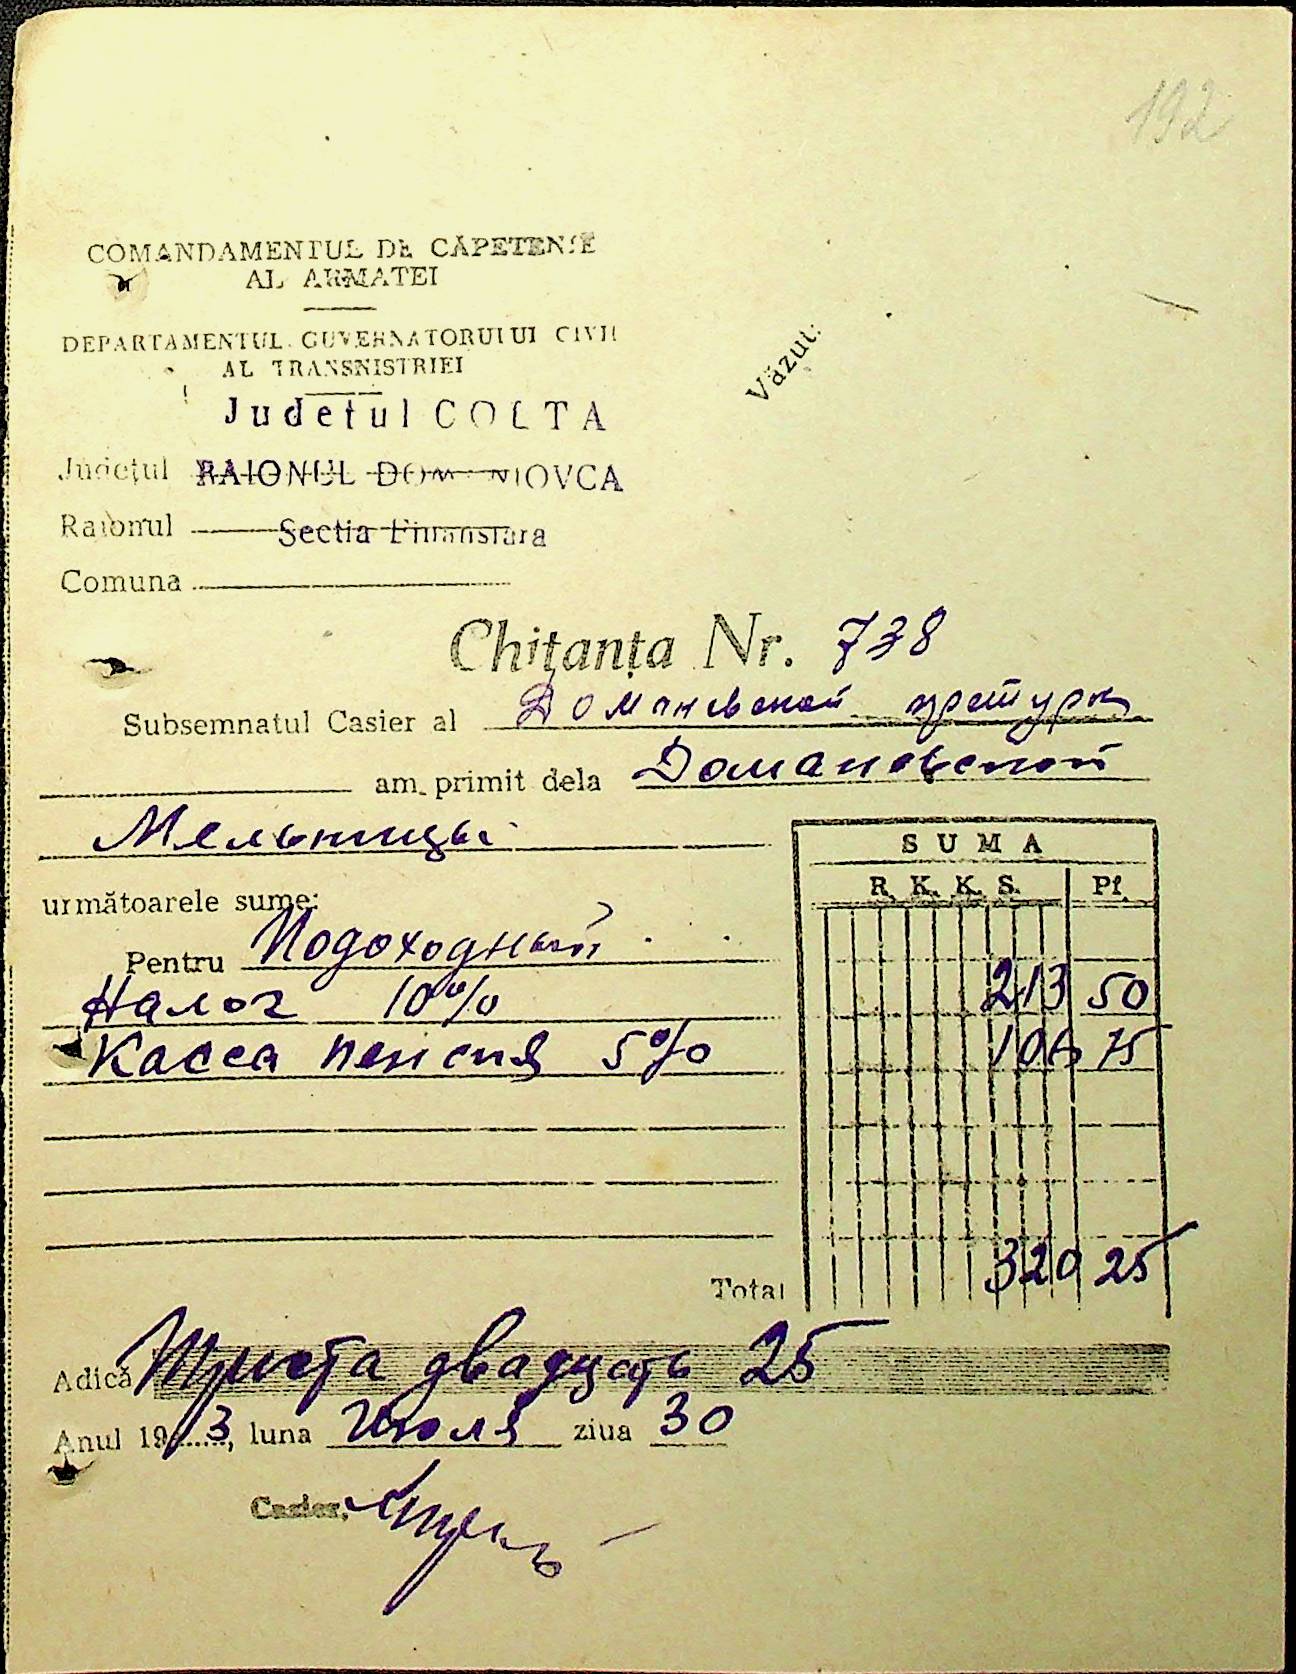 192
COMANDAMENTUL DE CĂPETENIE
AL ARMATEI
DEPARTAMENTUL GUVERNATORULUI CIVIL
AL TRANSNISTRIEI
Văzut:
Judetul COLTA
Județul RAIONUL DOMANIOVCA
Raionul Sectia Finansiara
Comuna
Chitanța Nr. 738
Subsemnatul Casier al Доманевской претуры
am primit dela Домановской
Мельницы
următoarele sume:
SUMA
R. K. K. S. Pf.
Pentru Подоходный
Налог 10% 213 50
Касса пенсия 5% 106 75
Total 320 25
Adică Триста двадцать 25
Anul 1943, luna Июля ziua 30
Casier,